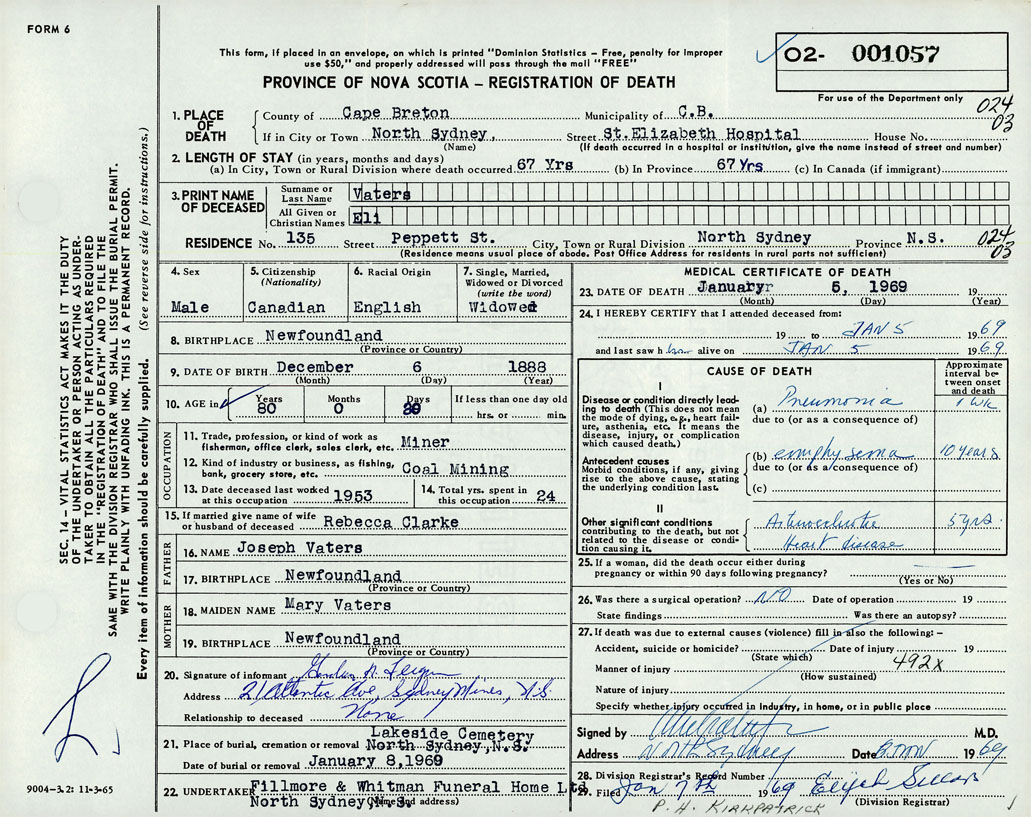 FORM 6
This form, if placed in an envelope, on which is printed "Dominion Statistics – Free, penalty for improper
use $50," and properly addressed will pass through the mail "FREE"
02- 001057
For use of the Department only
PROVINCE OF NOVA SCOTIA – REGISTRATION OF DEATH
024
03
1. PLACE OF DEATH
County of Cape Breton Municipality of C.B.
If in City or Town North Sydney, Street St.Elizabeth Hospital House No.
(Name) (If death occurred in a hospital or institution, give the name instead of street and number)
2. LENGTH OF STAY (in years, months and days)
(a) In City, Town or Rural Division where death occurred 67 Yrs (b) In Province 67 Yrs (c) In Canada (if immigrant)
3. PRINT NAME OF DECEASED
Surname or Last Name Vaters
All Given or Christian Names Eli
RESIDENCE No. 135 Street Peppett St. City, Town or Rural Division North Sydney Province N.S. 024
03
(Residence means usual place of abode. Post Office Address for residents in rural parts not sufficient)
4. Sex
Male
5. Citizenship
(Nationality)
Canadian
6. Racial Origin
English
7. Single, Married,
Widowed or Divorced
(write the word)
Widowed
8. BIRTHPLACE Newfoundland
(Province or Country)
9. DATE OF BIRTH December 6 1888
(Month) (Day) (Year)
10. AGE in Years Months Days If less than one day old
80 0 hrs. or min.
OCCUPATION
11. Trade, profession, or kind of work as
fisherman, office clerk, sales clerk, etc. Miner
12. Kind of industry or business, as fishing,
bank, grocery store, etc. Coal Mining
13. Date deceased last worked
at this occupation 1953
14. Total yrs. spent in
this occupation 24
15. If married give name of wife
or husband of deceased Rebecca Clarke
FATHER
16. NAME Joseph Vaters
17. BIRTHPLACE Newfoundland
(Province or Country)
MOTHER
18. MAIDEN NAME Mary Vaters
19. BIRTHPLACE Newfoundland
(Province or Country)
20. Signature of informant
Address 21 Atlantic Ave, Sydney Mines, N.S.
Relationship to deceased None
21. Place of burial, cremation or removal Lakeside Cemetery
North Sydney, N.S.
Date of burial or removal January 8,1969
22. UNDERTAKER Fillmore & Whitman Funeral Home Ltd.
North Sydney, N.S.
(Name and address)
MEDICAL CERTIFICATE OF DEATH
23. DATE OF DEATH Januaryr 5, 1969 19
(Month) (Day) (Year)
24. I HEREBY CERTIFY that I attended deceased from:
19 to JAN 5 1969
and last saw h alive on JAN 5 1969
CAUSE OF DEATH
Approximate
interval be-
tween onset
and death
I
Disease or condition directly lead-
ing to death (This does not mean
the mode of dying, e.g., heart fail-
ure, asthenia, etc. It means the
disease, injury, or complication
which caused death.)
(a) Pneumonia 1 wk
due to (or as a consequence of)
Antecedent causes
Morbid conditions, if any, giving
rise to the above cause, stating
the underlying condition last.
(b) emphysema 10 years
due to (or as a consequence of)
(c)
II
Other significant conditions
contributing to the death, but not
related to the disease or condi-
tion causing it.
5 yrs.
Heart disease
25. If a woman, did the death occur either during
pregnancy or within 90 days following pregnancy?
(Yes or No)
26. Was there a surgical operation? NO Date of operation 19
State findings Was there an autopsy?
27. If death was due to external causes (violence) fill in also the following: –
Accident, suicide or homicide? Date of injury 19
(State which)
Manner of injury 492X
(How sustained)
Nature of injury
Specify whether injury occurred in industry, in home, or in public place
Signed by M.D.
Address North Sydney Date 1969
28. Division Registrar's Record Number
29. Filed Jan 7th 1969
(Division Registrar)
P. H. KIRKPATRICK
SEC. 14 – VITAL STATISTICS ACT MAKES IT THE DUTY
OF THE UNDERTAKER OR PERSON ACTING AS UNDER-
TAKER TO OBTAIN ALL THE PARTICULARS REQUIRED
IN THE "REGISTRATION OF DEATH" AND TO FILE THE
SAME WITH THE DIVISION REGISTRAR WHO SHALL ISSUE THE BURIAL PERMIT.
WRITE PLAINLY WITH UNFADING INK. THIS IS A PERMANENT RECORD.
Every item of information should be carefully supplied. (See reverse side for instructions.)
9004-3.2: 11-3-65